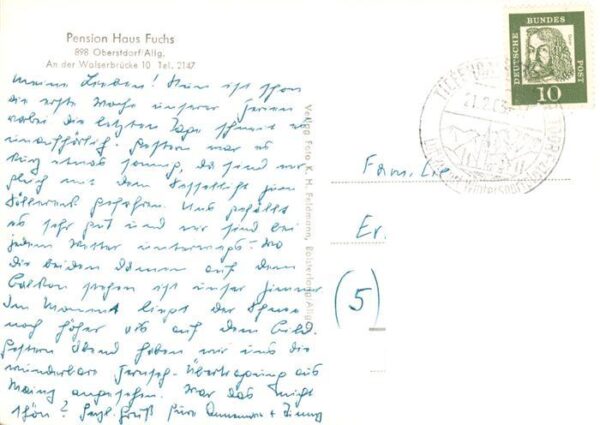 Pension Haus Fuchs
898 Oberstdorf/Allg.
An der Walserbrücke 10 Tel. 2147
Meine Lieben! Nun ist schon
die erste Woche unserer Ferien
vorbei die letzten Tage schneit es
unaufhörlich. Gestern war es
etwas sonnig, da sind wir
gleich mit dem Sessellift zum
Söllereck gefahren. Uns gefällt
es sehr gut und wir sind bei
jedem Wetter unterwegs. Wo
die beiden Damen auf dem
Balkon stehen ist unser Zimmer
Im Moment liegt der Schnee
noch höher als auf dem Bild.
Gestern Abend haben wir uns die
wunderbare Fernseh-Übertragung aus
Mainz angesehen. War das nicht
schön? Herzl. Grüße
Verlag Foto K. H. Feldmann, Bolsterlang/Allg.
DEUTSCHE
BUNDES
POST
10
21.2.63
Wintersport
Fam.
Er.
(5)